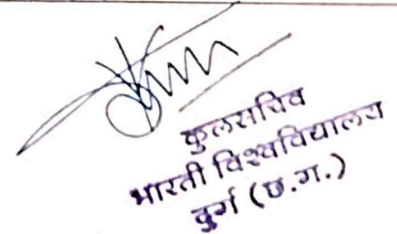 कुलसचिव
भारती विश्वविद्यालय
दुर्ग (छ.ग.)